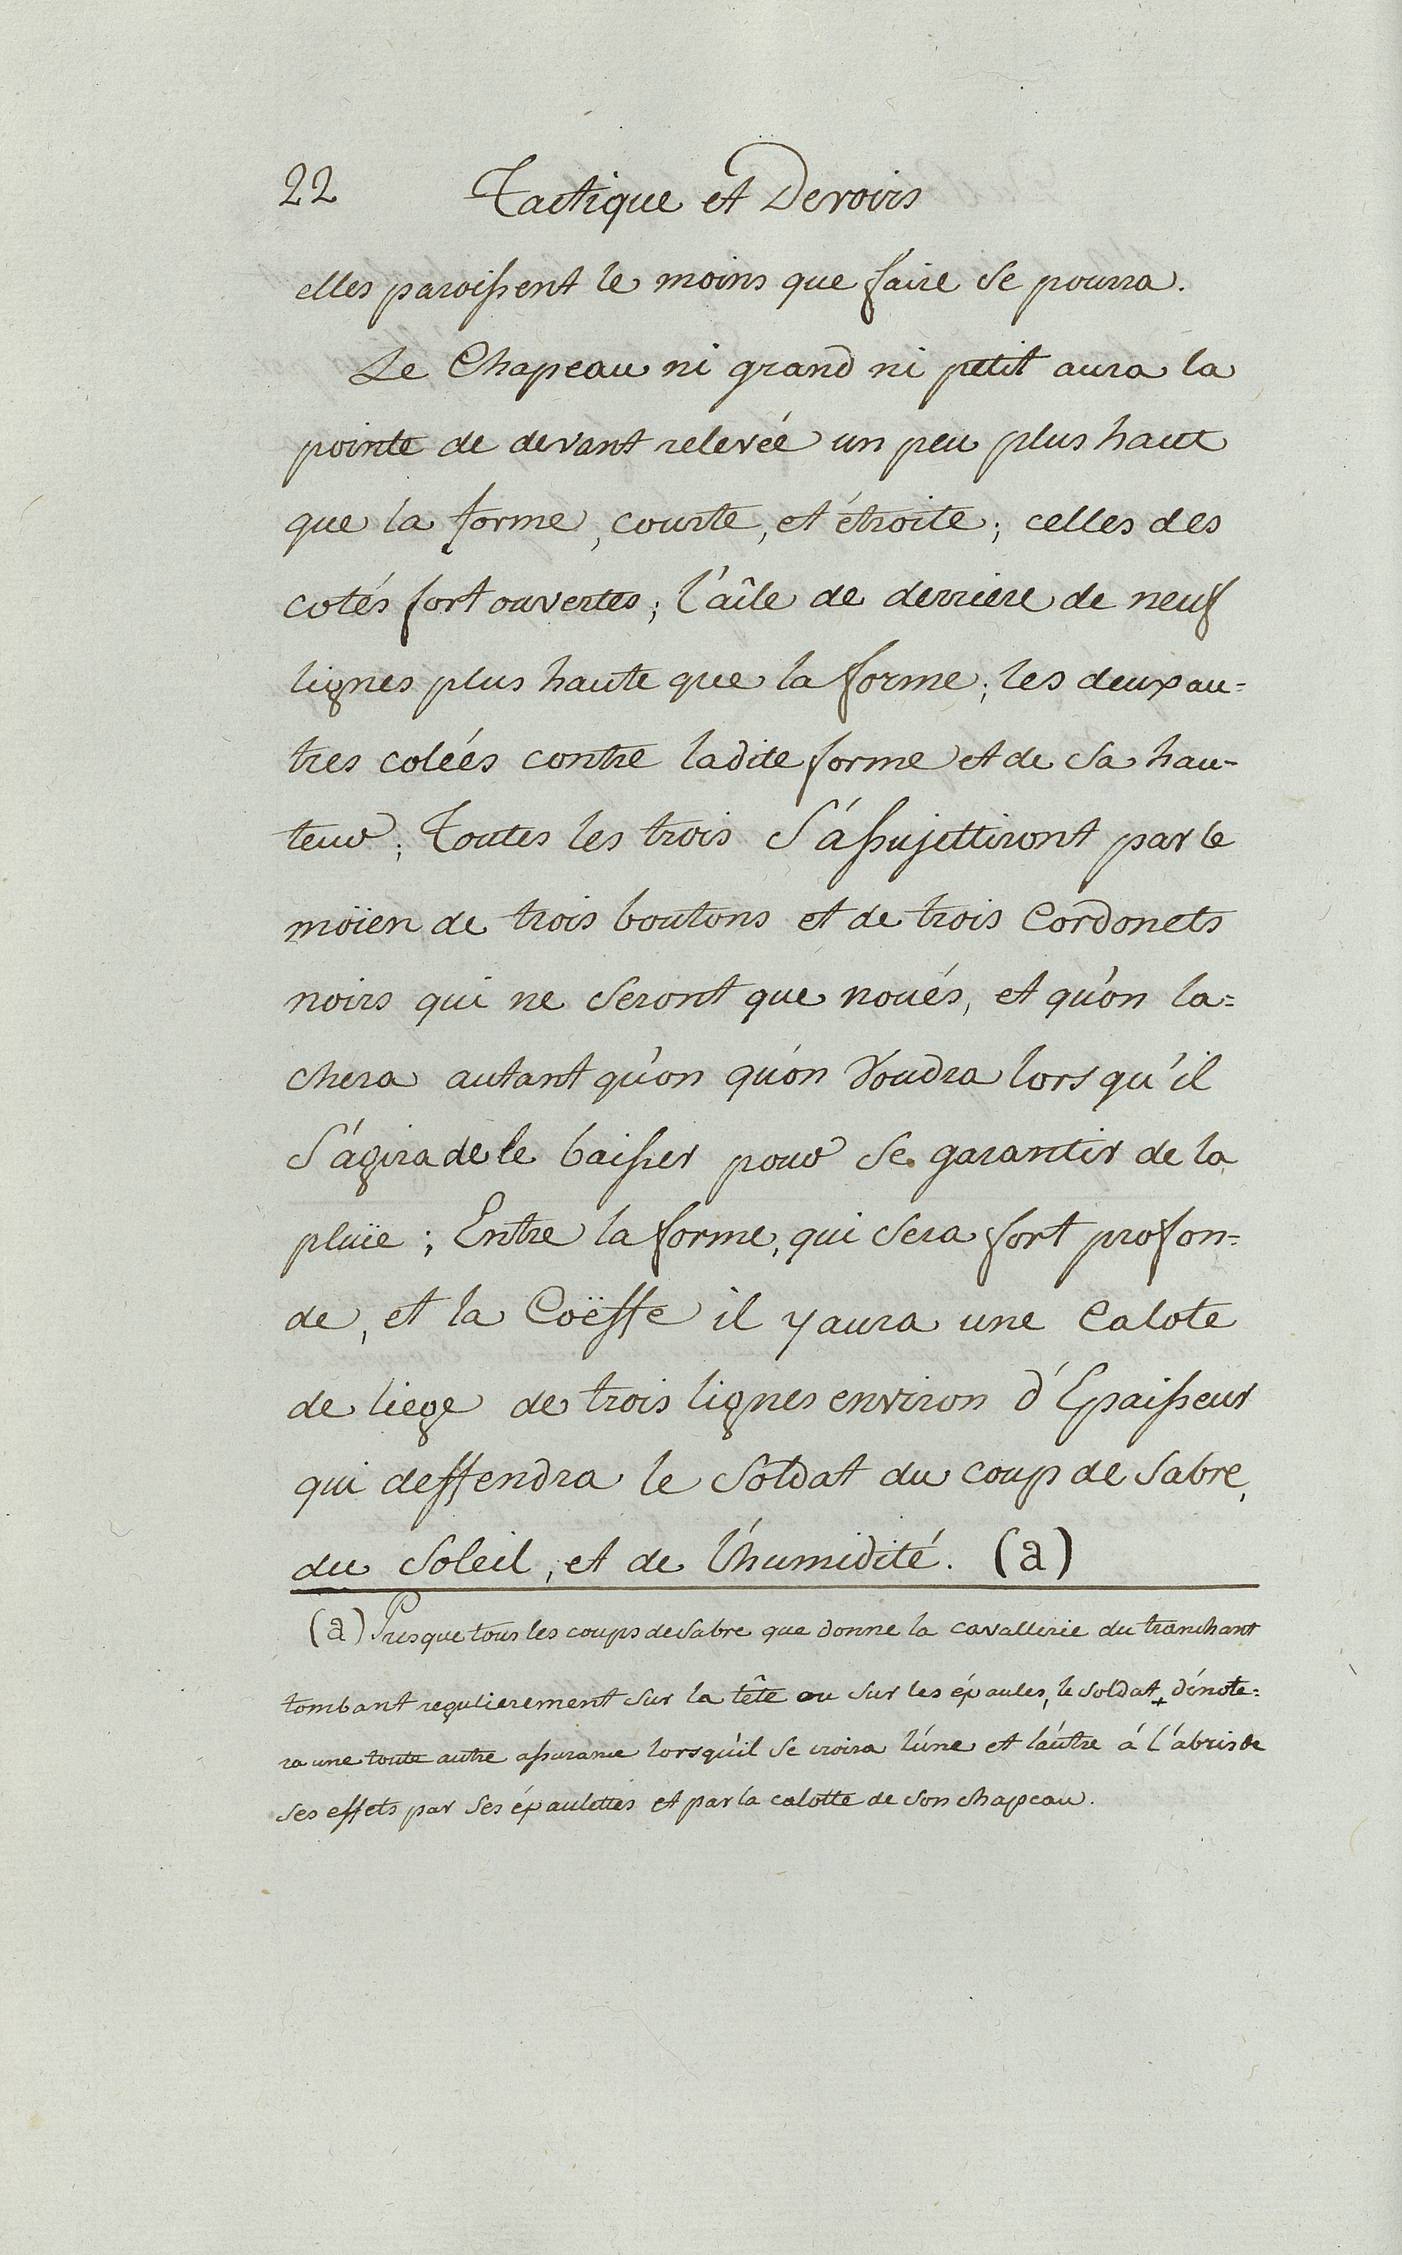 22 Tactique et Devoirs
elles paroissent le moins que faire se pourra.
Le Chapeau ni grand ni petit aura la
pointe de devant relevéé un peu plus haut
que la forme, courte, et étroite; celles des
cotés fort ouvertes; l'aîle de derriere de neuf
lignes plus haute que la forme; les deux au=
tres coléés contre ladite forme et de sa hau-
teur; Toutes les trois s'assujettiront par le
moïen de trois boutons et de trois Cordonets
noirs qui ne seront que noués, et qu'on la=
chera autant qu'on qu'on voudra lorsqu'il
s'agira de le baisser pour se garantir de la
pluïe; Entre la forme, qui sera fort profon=
de, et la Coëffe il y aura une Calote
de liege de trois lignes environ d'Epaisseur
qui deffendra le Soldat du coup de Sabre,
du Soleil, et de l'humidité. (a)
(a) Presque tous les coups de Sabre que donne la cavallerie du tranchant
tombant regulierement sur la tête ou sur les épaules, le soldat + dénote=
ra une toute autre assurance lorsqu'il se croira l'une et l'autre á l'abris de
ses effets par ses épaulettes et par la calotte de son chapeau.